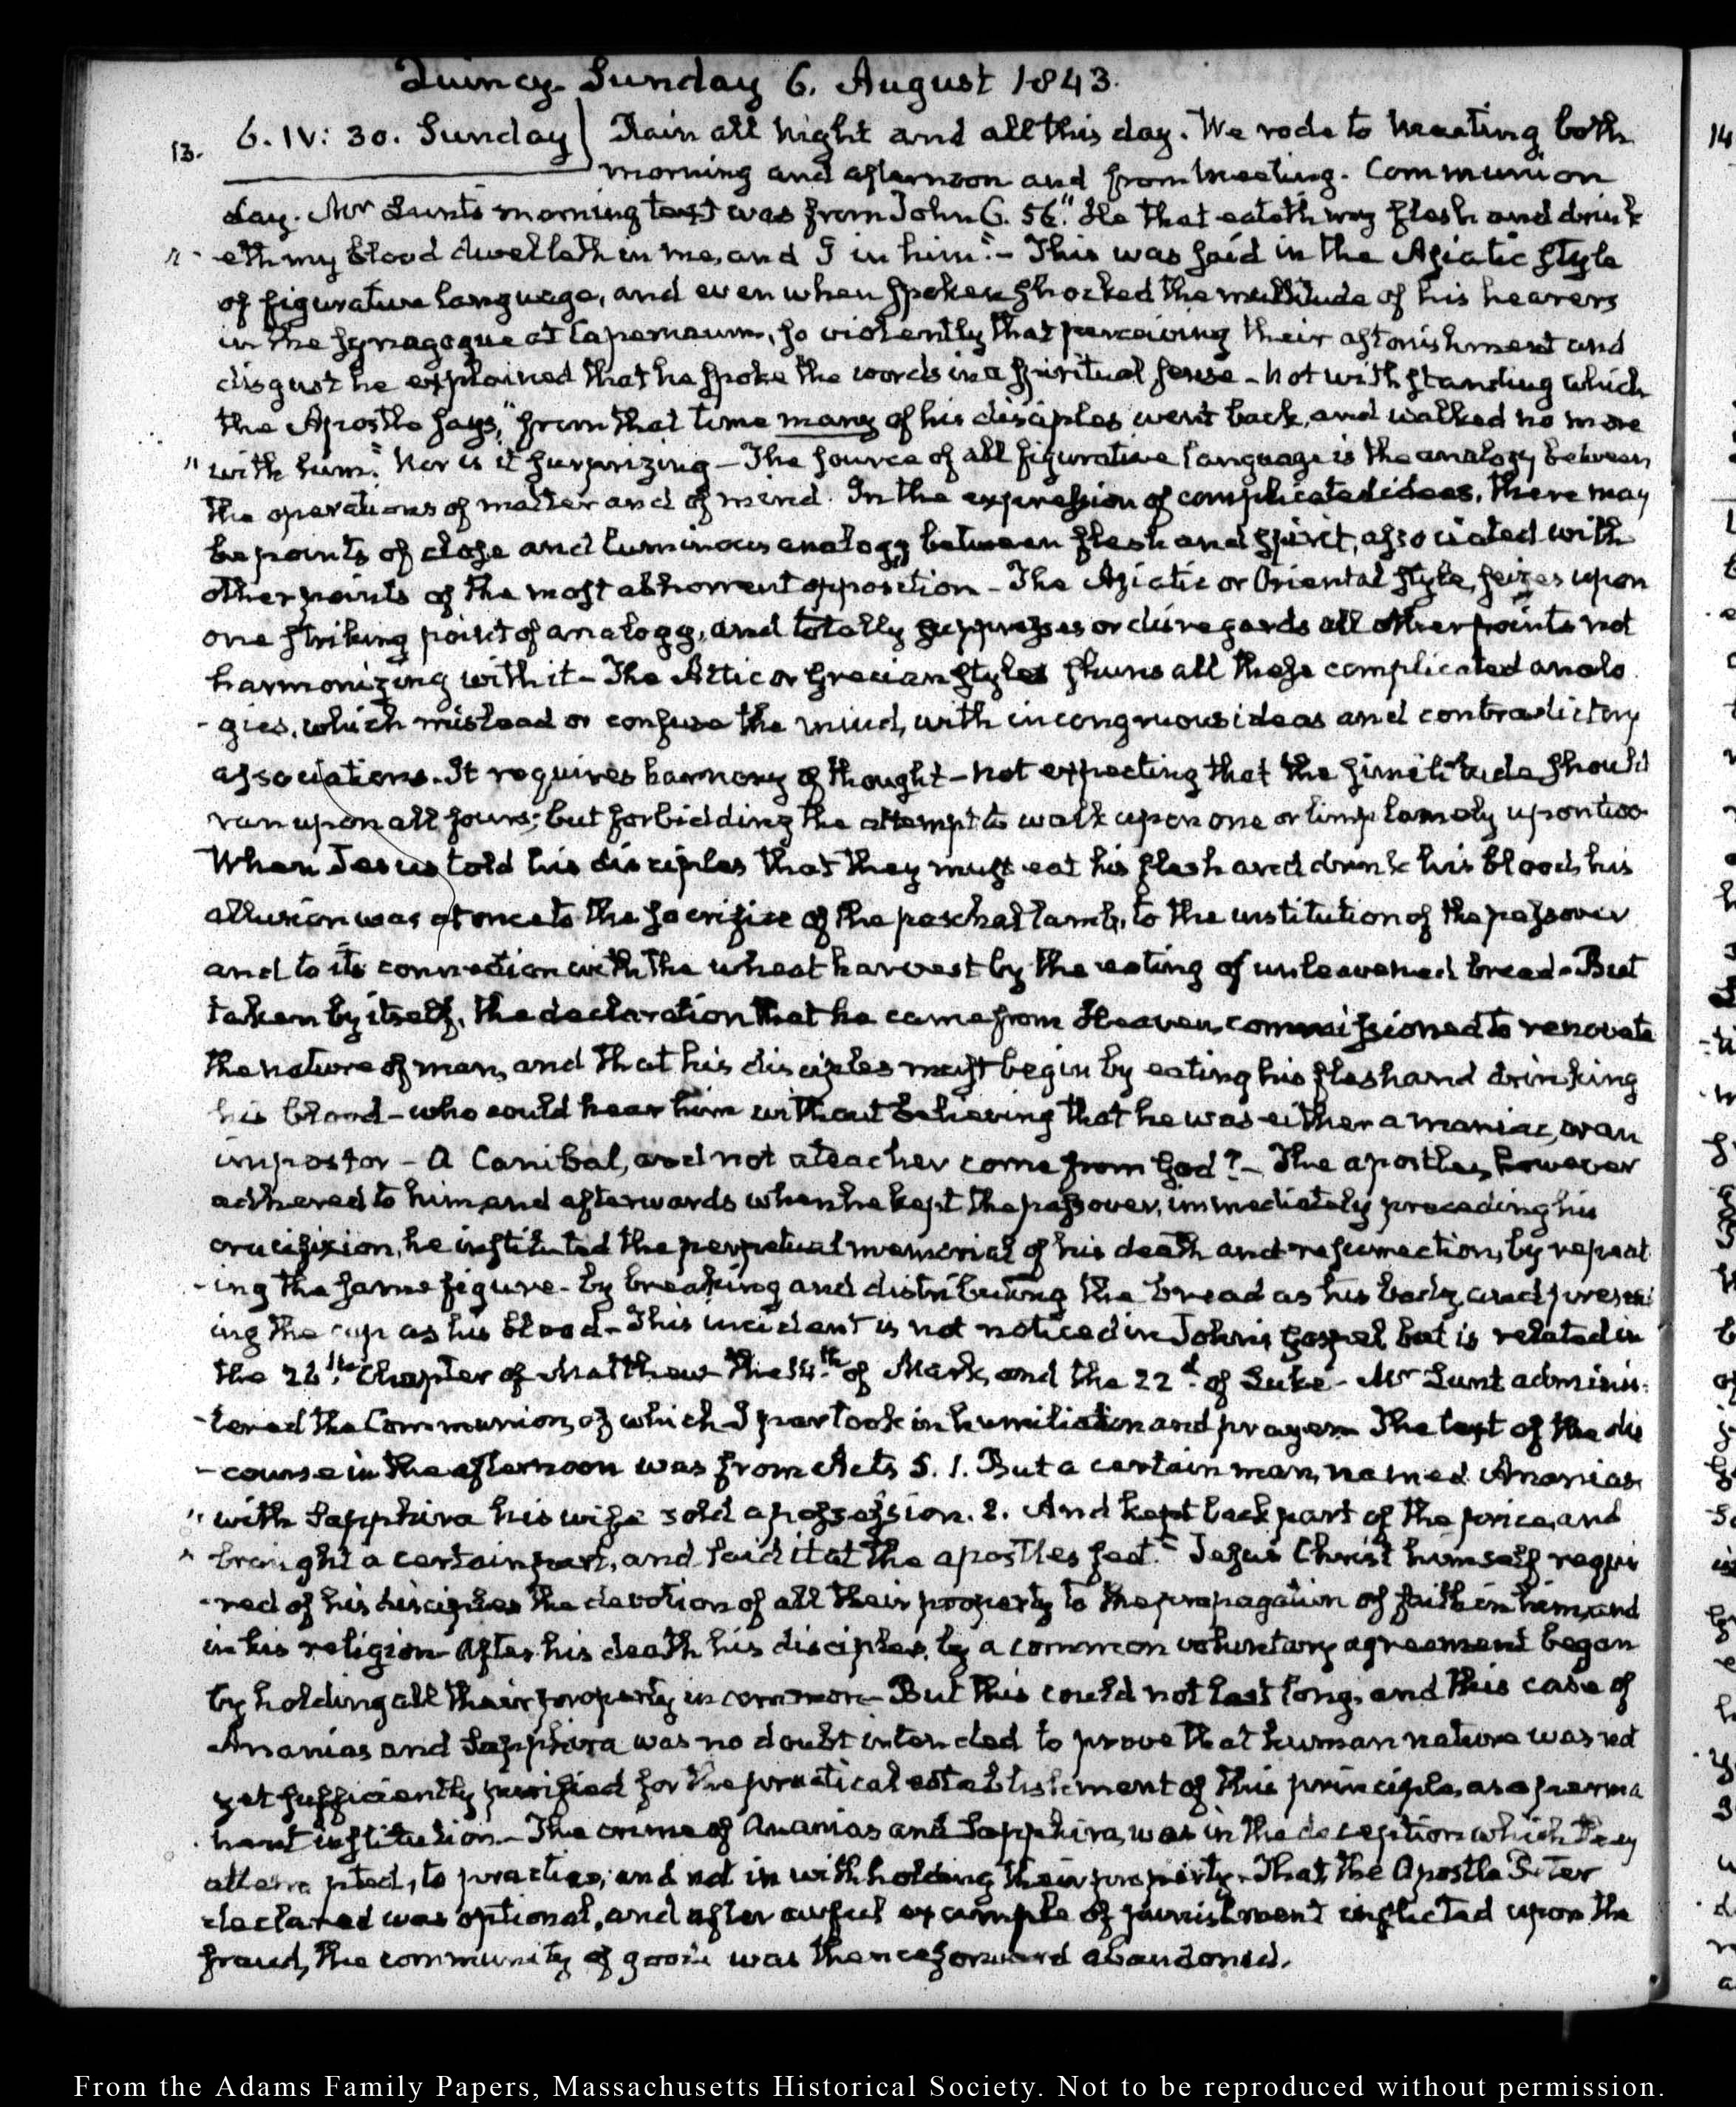 Quincy. Sunday 6. August 1843.
13.
6. IV: 30. Sunday} Rain all night and all this day. We rode to meeting both
morning and afternoon and from meeting. Communion
day. Mr Lunt's morning text was from John 6. 56. "He that eateth my flesh and drink
"- eth my blood dwelleth in me, and I in him."- This was said in the Asiatic style
of figurative language, and even when spoken shocked the multitude of his hearers
in the Synagogue at Capernaum, so violently that perceiving their astonishment and
disgust he explained that he spoke the words in a spiritual sense - notwithstanding which
the Apostle says, "from that time many of his disciples went back, and walked no more
"with him." Nor is it surprizing - The source of all figurative language is the analogy between
the operations of matter and of mind. In the expression of complicated ideas, there may
be points of close and luminous analogy between flesh and spirit, associated with
other points of the most abhorrent opposition - The Asiatic or Oriental style, seizes upon
one striking point of analogy, and totally suppresses or disregards all other points not
harmonizing with it - The Attic or Grecian style shuns all these complicated analo
- gies, which mislead or confuse the mind, with incongruous ideas and contradictory
associations. It requires harmony of thought - not expecting that the similitude should
run upon all fours; but forbidding the attempt to walk upon one or limp lamely upon two
When Jesus told his disciples that they must eat his flesh and drink his blood, his
allusion was at once to the sacrifice of the paschal lamb, to the institution of the passover
and to its connection with the wheat harvest by the eating of unleavened bread - But
taken by itself, the declaration that he came from Heaven, commissioned to renovate
the nature of man, and that his disciples must begin by eating his flesh and drinking
his blood - who could hear him without believing that he was either a maniac, or an
impostor - A Canibal, and not a teacher come from God? - The apostles, however
adhered to him, and afterwards when he kept the passover, immediately preceding his
crucifixion, he instituted the perpetual memorial of his death and resurrection, by repeat
- ing the same figure - by breaking and distributing the bread as his body, and present
ing the cup as his blood - This incident is not noticed in John's Gospel but is related in
the 26th Chapter of Matthew the 14th of Mark, and the 22d of Luke - Mr Lunt adminis:
- tered the Communion, of which I partook in humiliation and prayer. The text of the dis
- course in the afternoon was from Acts 5. 1. But a certain man, named Ananias
" with Sapphira his wife sold a possession. 2. And kept back part of the price, and
" brought a certain part, and laid it at the apostles feet." Jesus Christ himself requi
- red of his disciples the devotion of all their property to the propagation of faith in him, and
in his religion - After his death his disciples, by a common voluntary agreement began
by holding all their property in common - But this could not last long, and this case of
Ananias and Sapphira was no doubt intended to prove that human nature was not
yet sufficiently purified for the practical establishment of this principle, as a perma
- nent institution - The crime of Ananias and Sapphira, was in the deception which they
attempted, to practise; and not in withholding their property - That the Apostle Peter
declared was optional, and after awful example of punishment inflicted upon the
fraud, the community of goods was thenceforward abandoned.
14
From the Adams Family Papers, Massachusetts Historical Society. Not to be reproduced without permission.